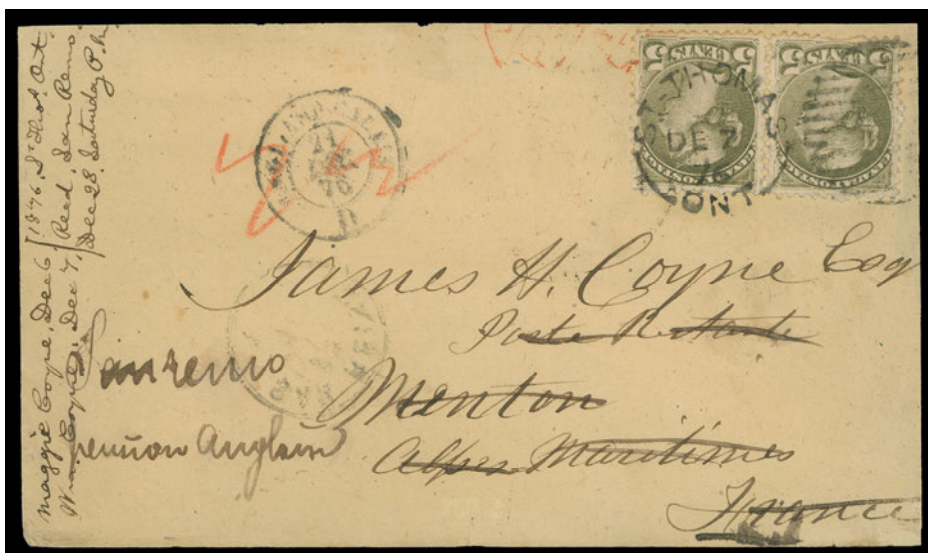 Maggie Coyne, Dec 6 } 1876, St Thos. Ont
Wm Coyne, Dec 7, } Recd. San Remo
Dec 28. Saturday P.M.
5 CENTS
5 CENTS
CANADA POSTAGE
CANADA POSTAGE
ST-THOMAS
DE 7
76
ONT
21
76
James H. Coyne Esq
Poste Restante
Menton
Alpes Maritimes
France
Sanremo
pension Anglaise